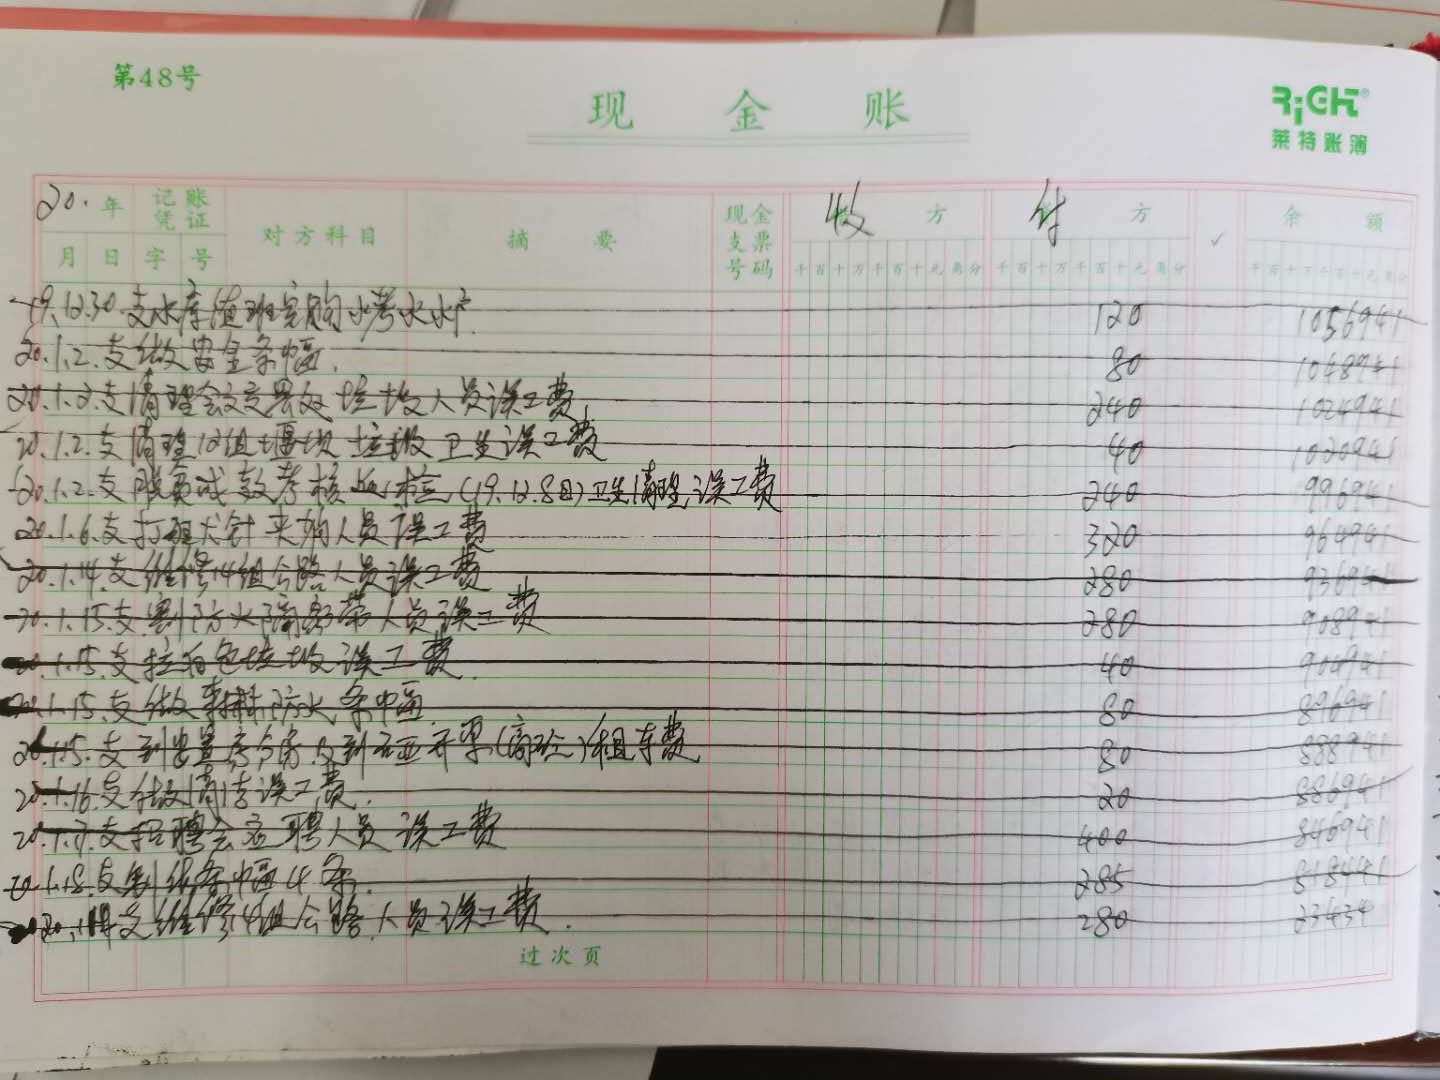 第48号
现 金 账
RiGHT®
莱特账簿
20. 年 记账凭证 对方科目 摘 要 现金支票号码 收 方 付 方 ✓ 余 额
月 日 字 号 千百十万千百十元角分 千百十万千百十元角分 千百十万千百十元角分
19.12.30.支水库值班室购 水 120 1056941
20.1.2.支做安全条幅. 80 1048941
20.1.2.支清理 交界处垃圾人员误工费 240 1024941
20.1.2.支清理12组堰坝垃圾卫生误工费 40 1020941
20.1.2.支脱贫成效考核 (19.12.8日)卫生清理误工费 240 996941
20.1.6.支打狂犬针 人员误工费 320 964941
20.1.14.支维修14组公路人员误工费 280 936941
20.1.15.支割防火隔离带人员误工费 280 908941
20.1.15.支拉白色垃圾误工费. 40 904941
20.1.15.支做森林防火条幅. 80 896941
20.1.15.支到安置房分房及到 租车费 80 888941
20.1.16.支做清洁误工费. 20 886941
20.1.17.支招聘会应聘人员误工费 400 846941
20.1.18.支制作条幅4条. 285 818441
20.1.14支维修14组公路人员误工费. 280 23434
过次页